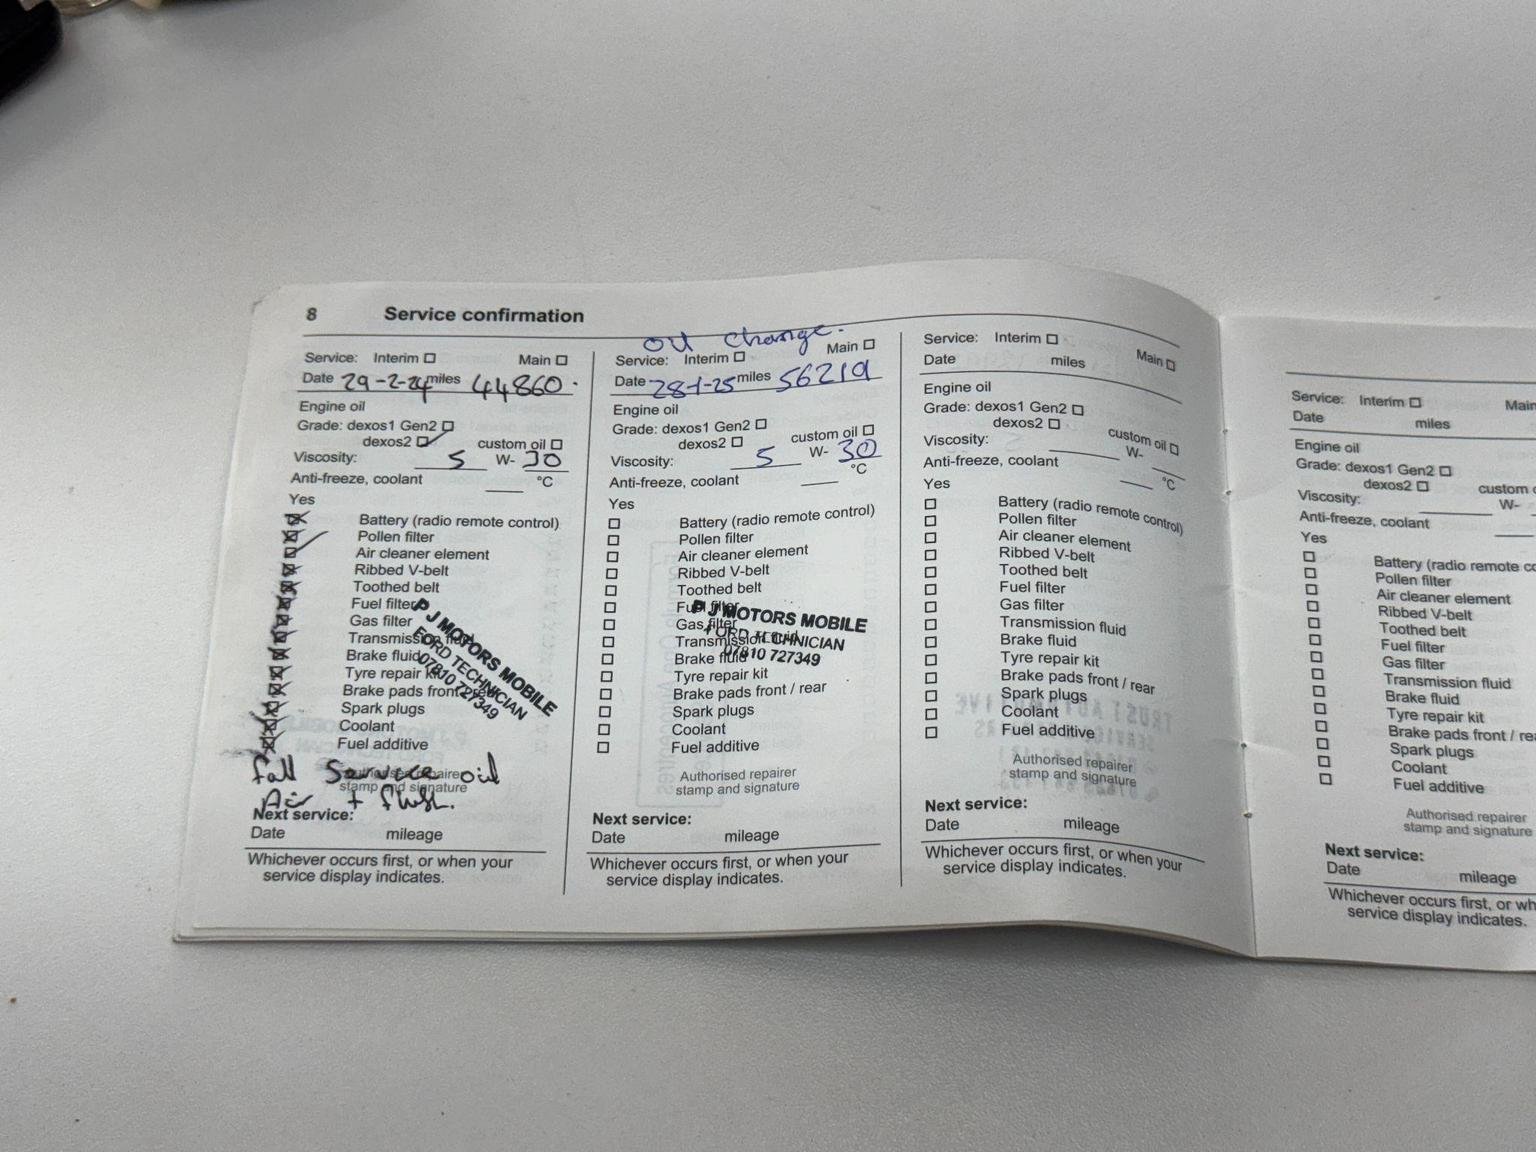 8 Service confirmation
Service: Interim Main
Date 29-2-24 miles 44860.
Engine oil
Grade: dexos1 Gen2
dexos2 custom oil
Viscosity: 5 W- 30
Anti-freeze, coolant °C
Yes
Battery (radio remote control)
Pollen filter
Air cleaner element
Ribbed V-belt
Toothed belt
Fuel filter
Gas filter
Transmission fluid
Brake fluid
Tyre repair kit
Brake pads front / rear
Spark plugs
Coolant
Fuel additive
P J MOTORS MOBILE
FORD TECHNICIAN
07810 727349
Full Service oil
Air + flush.
Authorised repairer
stamp and signature
Next service:
Date mileage
Whichever occurs first, or when your
service display indicates.
oil change.
Service: Interim Main
Date 28-1-25 miles 56219
Engine oil
Grade: dexos1 Gen2
dexos2 custom oil
Viscosity: 5 W- 30
Anti-freeze, coolant °C
Yes
Battery (radio remote control)
Pollen filter
Air cleaner element
Ribbed V-belt
Toothed belt
Fuel filter
Gas filter
Transmission fluid
Brake fluid
Tyre repair kit
Brake pads front / rear
Spark plugs
Coolant
Fuel additive
P J MOTORS MOBILE
FORD TECHNICIAN
07810 727349
Authorised repairer
stamp and signature
Next service:
Date mileage
Whichever occurs first, or when your
service display indicates.
Service: Interim Main
Date miles
Engine oil
Grade: dexos1 Gen2
dexos2 custom oil
Viscosity: W-
Anti-freeze, coolant °C
Yes
Battery (radio remote control)
Pollen filter
Air cleaner element
Ribbed V-belt
Toothed belt
Fuel filter
Gas filter
Transmission fluid
Brake fluid
Tyre repair kit
Brake pads front / rear
Spark plugs
Coolant
Fuel additive
Authorised repairer
stamp and signature
Next service:
Date mileage
Whichever occurs first, or when your
service display indicates.
Service: Interim Main
Date miles
Engine oil
Grade: dexos1 Gen2
dexos2 custom
Viscosity: W-
Anti-freeze, coolant
Yes
Battery (radio remote co
Pollen filter
Air cleaner element
Ribbed V-belt
Toothed belt
Fuel filter
Gas filter
Transmission fluid
Brake fluid
Tyre repair kit
Brake pads front / re
Spark plugs
Coolant
Fuel additive
Authorised repairer
stamp and signature
Next service:
Date mileage
Whichever occurs first, or wh
service display indicates.